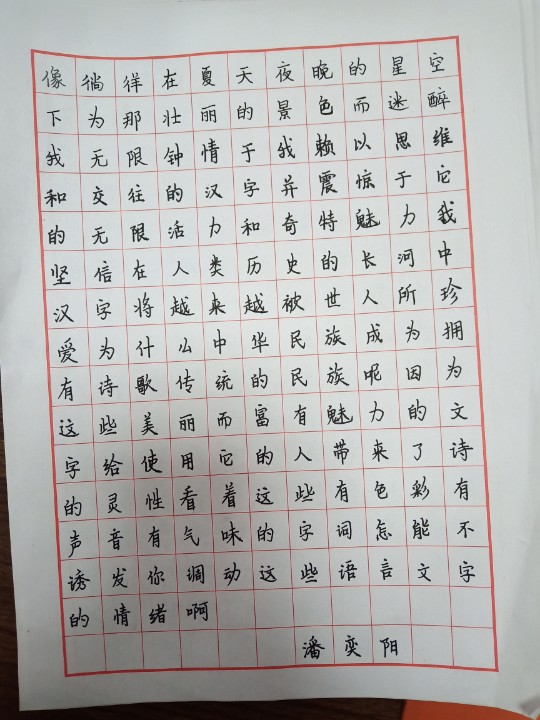 像徜徉在夏天夜晚的星空
下为那壮丽的景色而迷醉
我无限钟情于我赖以思维
和交往的汉字并震惊于它
的无限活力和奇特魅力我
坚信在人类历史的长河中
汉字将越来越被世人所珍
爱为什么中华民族成为拥
有诗歌传统的民族呢因为
这些美丽而富有魅力的文
字给使用它的人带来了诗
的灵性看着这些有色彩有
声音有气味的字词怎能不
诱发你调动这些语言文字
的情绪啊
潘奕阳